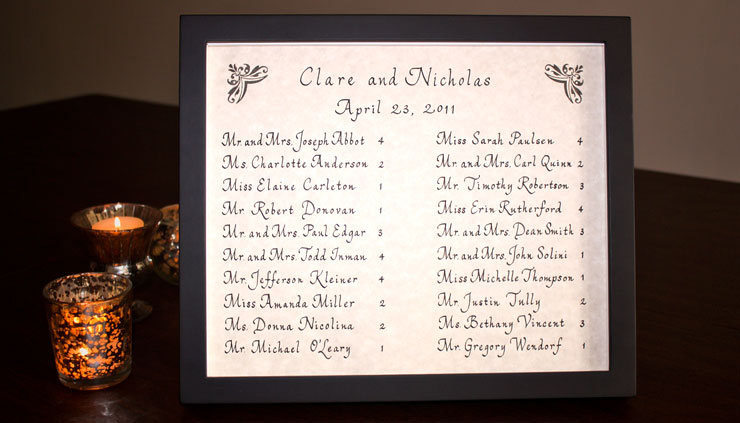 Clare and Nicholas
April 23, 2011
Mr. and Mrs. Joseph Abbot 4
Ms. Charlotte Anderson 2
Miss Elaine Carleton 1
Mr. Robert Donovan 1
Mr. and Mrs. Paul Edgar 3
Mr. and Mrs. Todd Inman 4
Mr. Jefferson Kleiner 4
Miss Amanda Miller 2
Ms. Donna Nicolina 2
Mr. Michael O'Leary 1
Miss Sarah Paulsen 4
Mr. and Mrs. Carl Quinn 2
Mr. Timothy Robertson 3
Miss Erin Rutherford 4
Mr. and Mrs. Dean Smith 3
Mr. and Mrs. John Solini 1
Miss Michelle Thompson 1
Mr. Justin Tully 2
Ms. Bethany Vincent 3
Mr. Gregory Wendorf 1